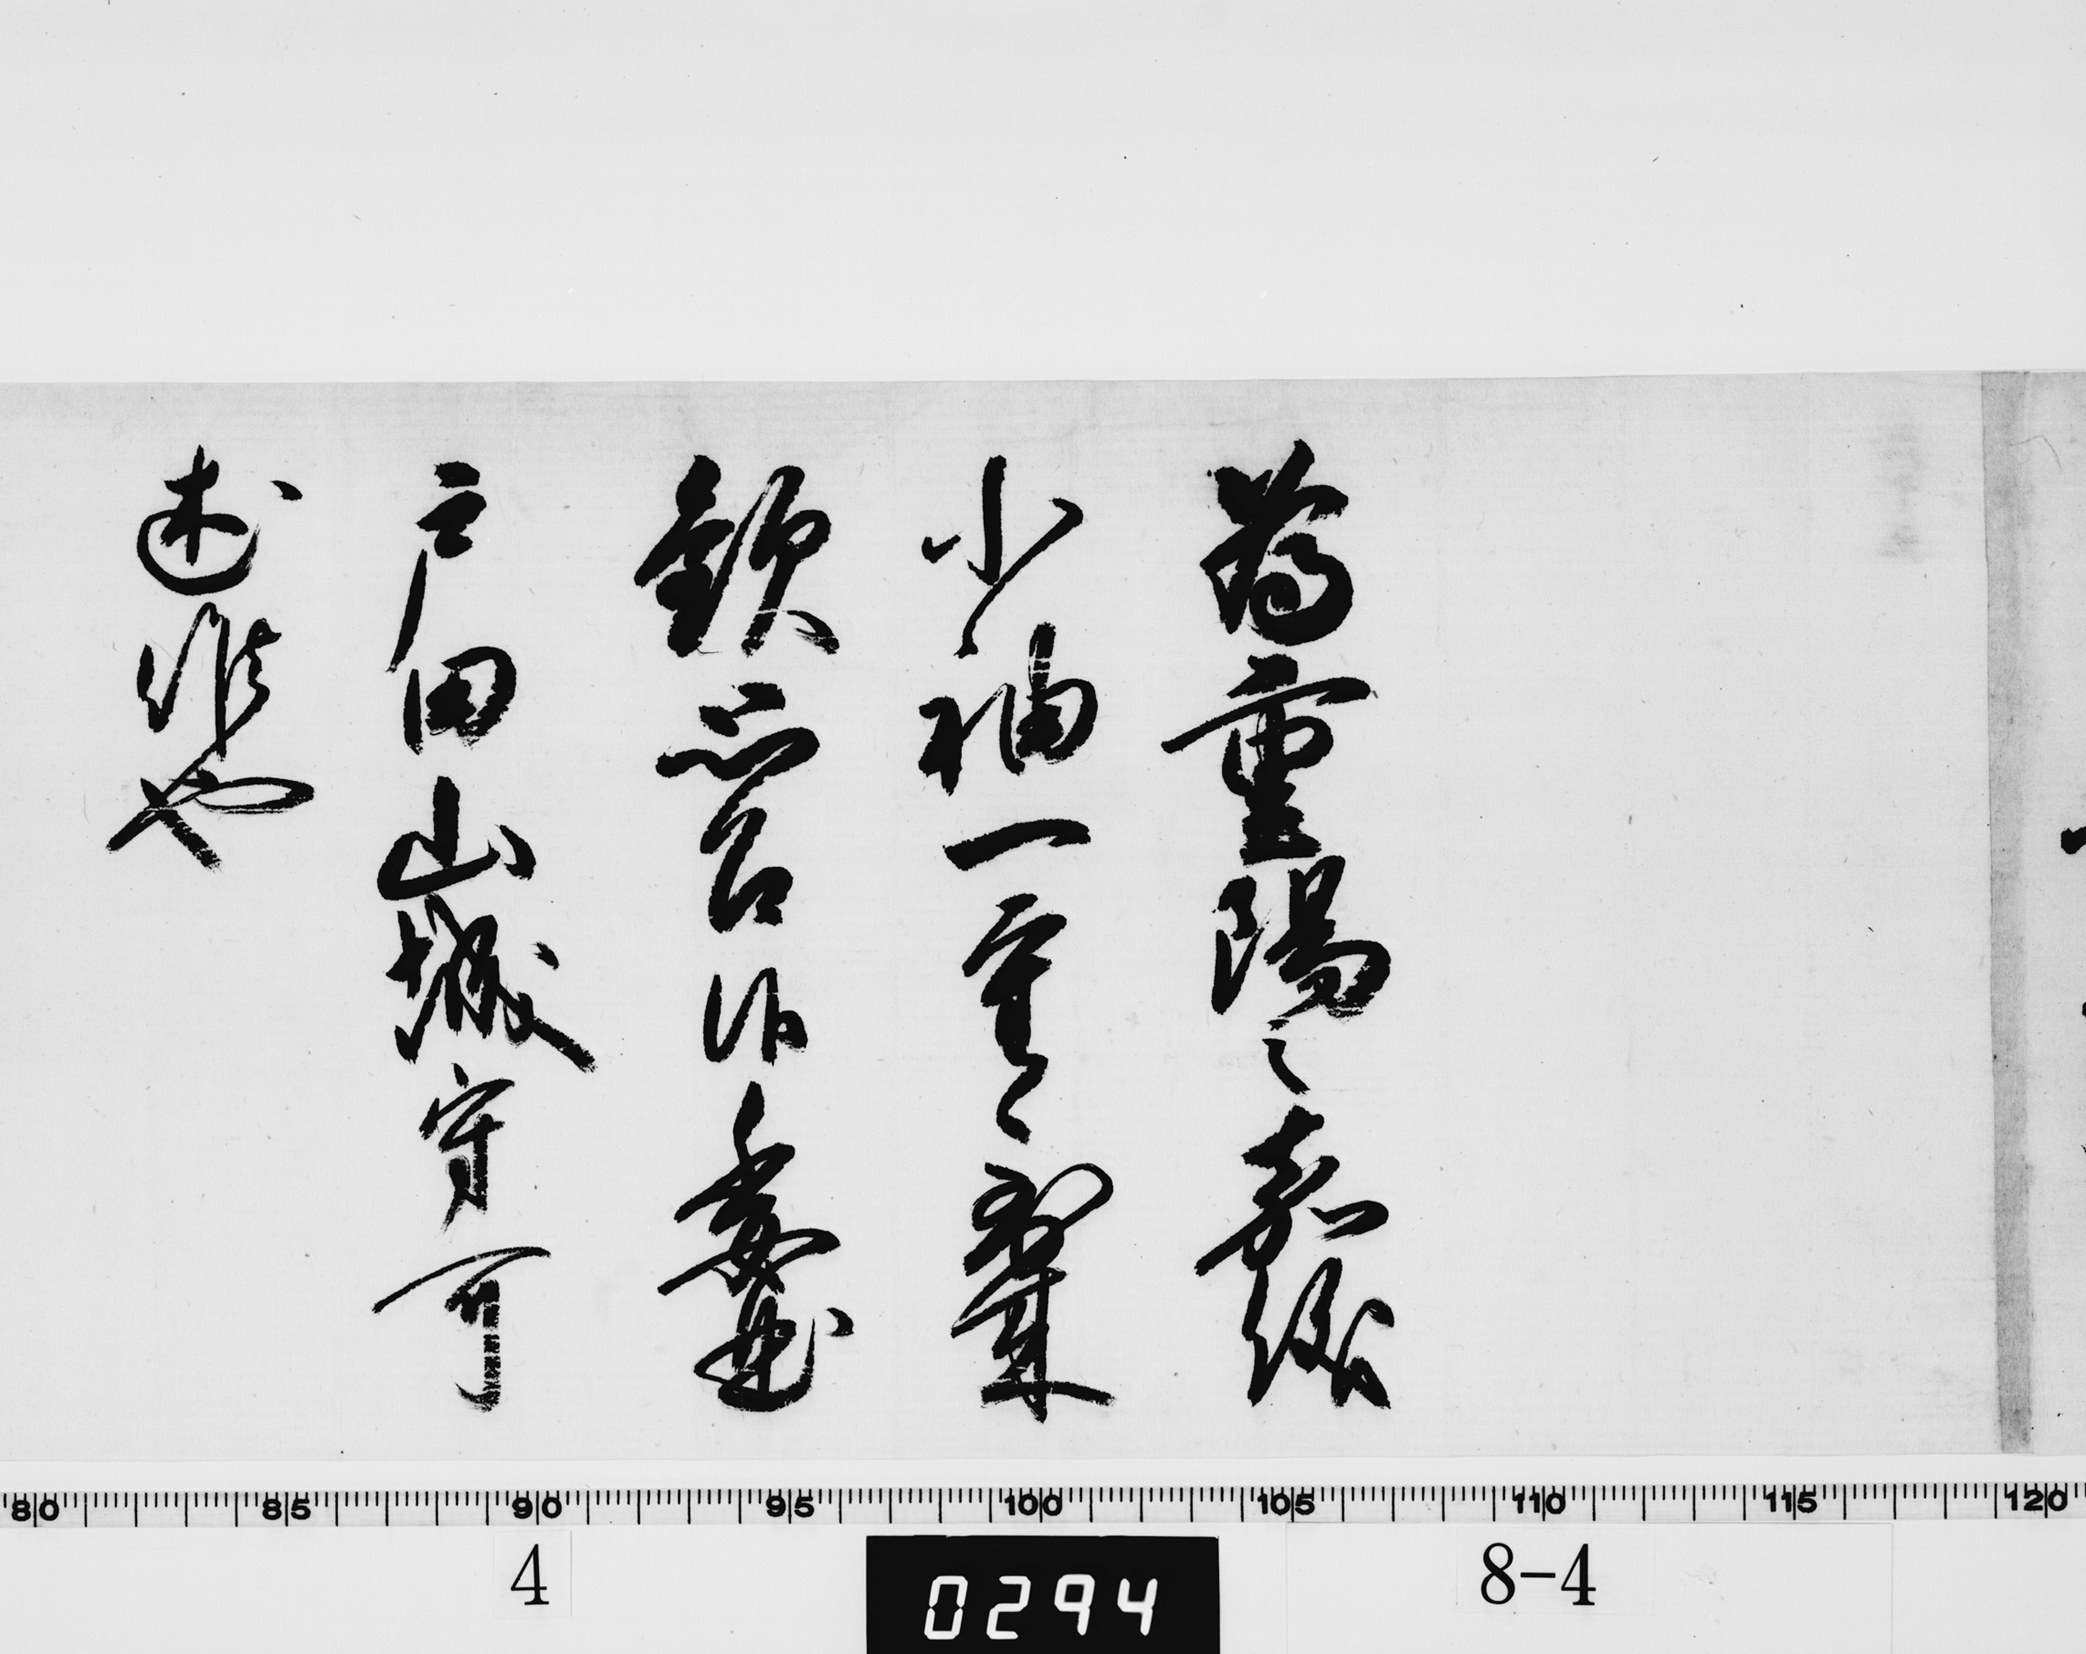 為重陽之嘉儀
小袖一重到来
歓思召候委曲
戸田山城守可
述候也
80 85 90 95 100 105 110 115 120
4 0294 8-4